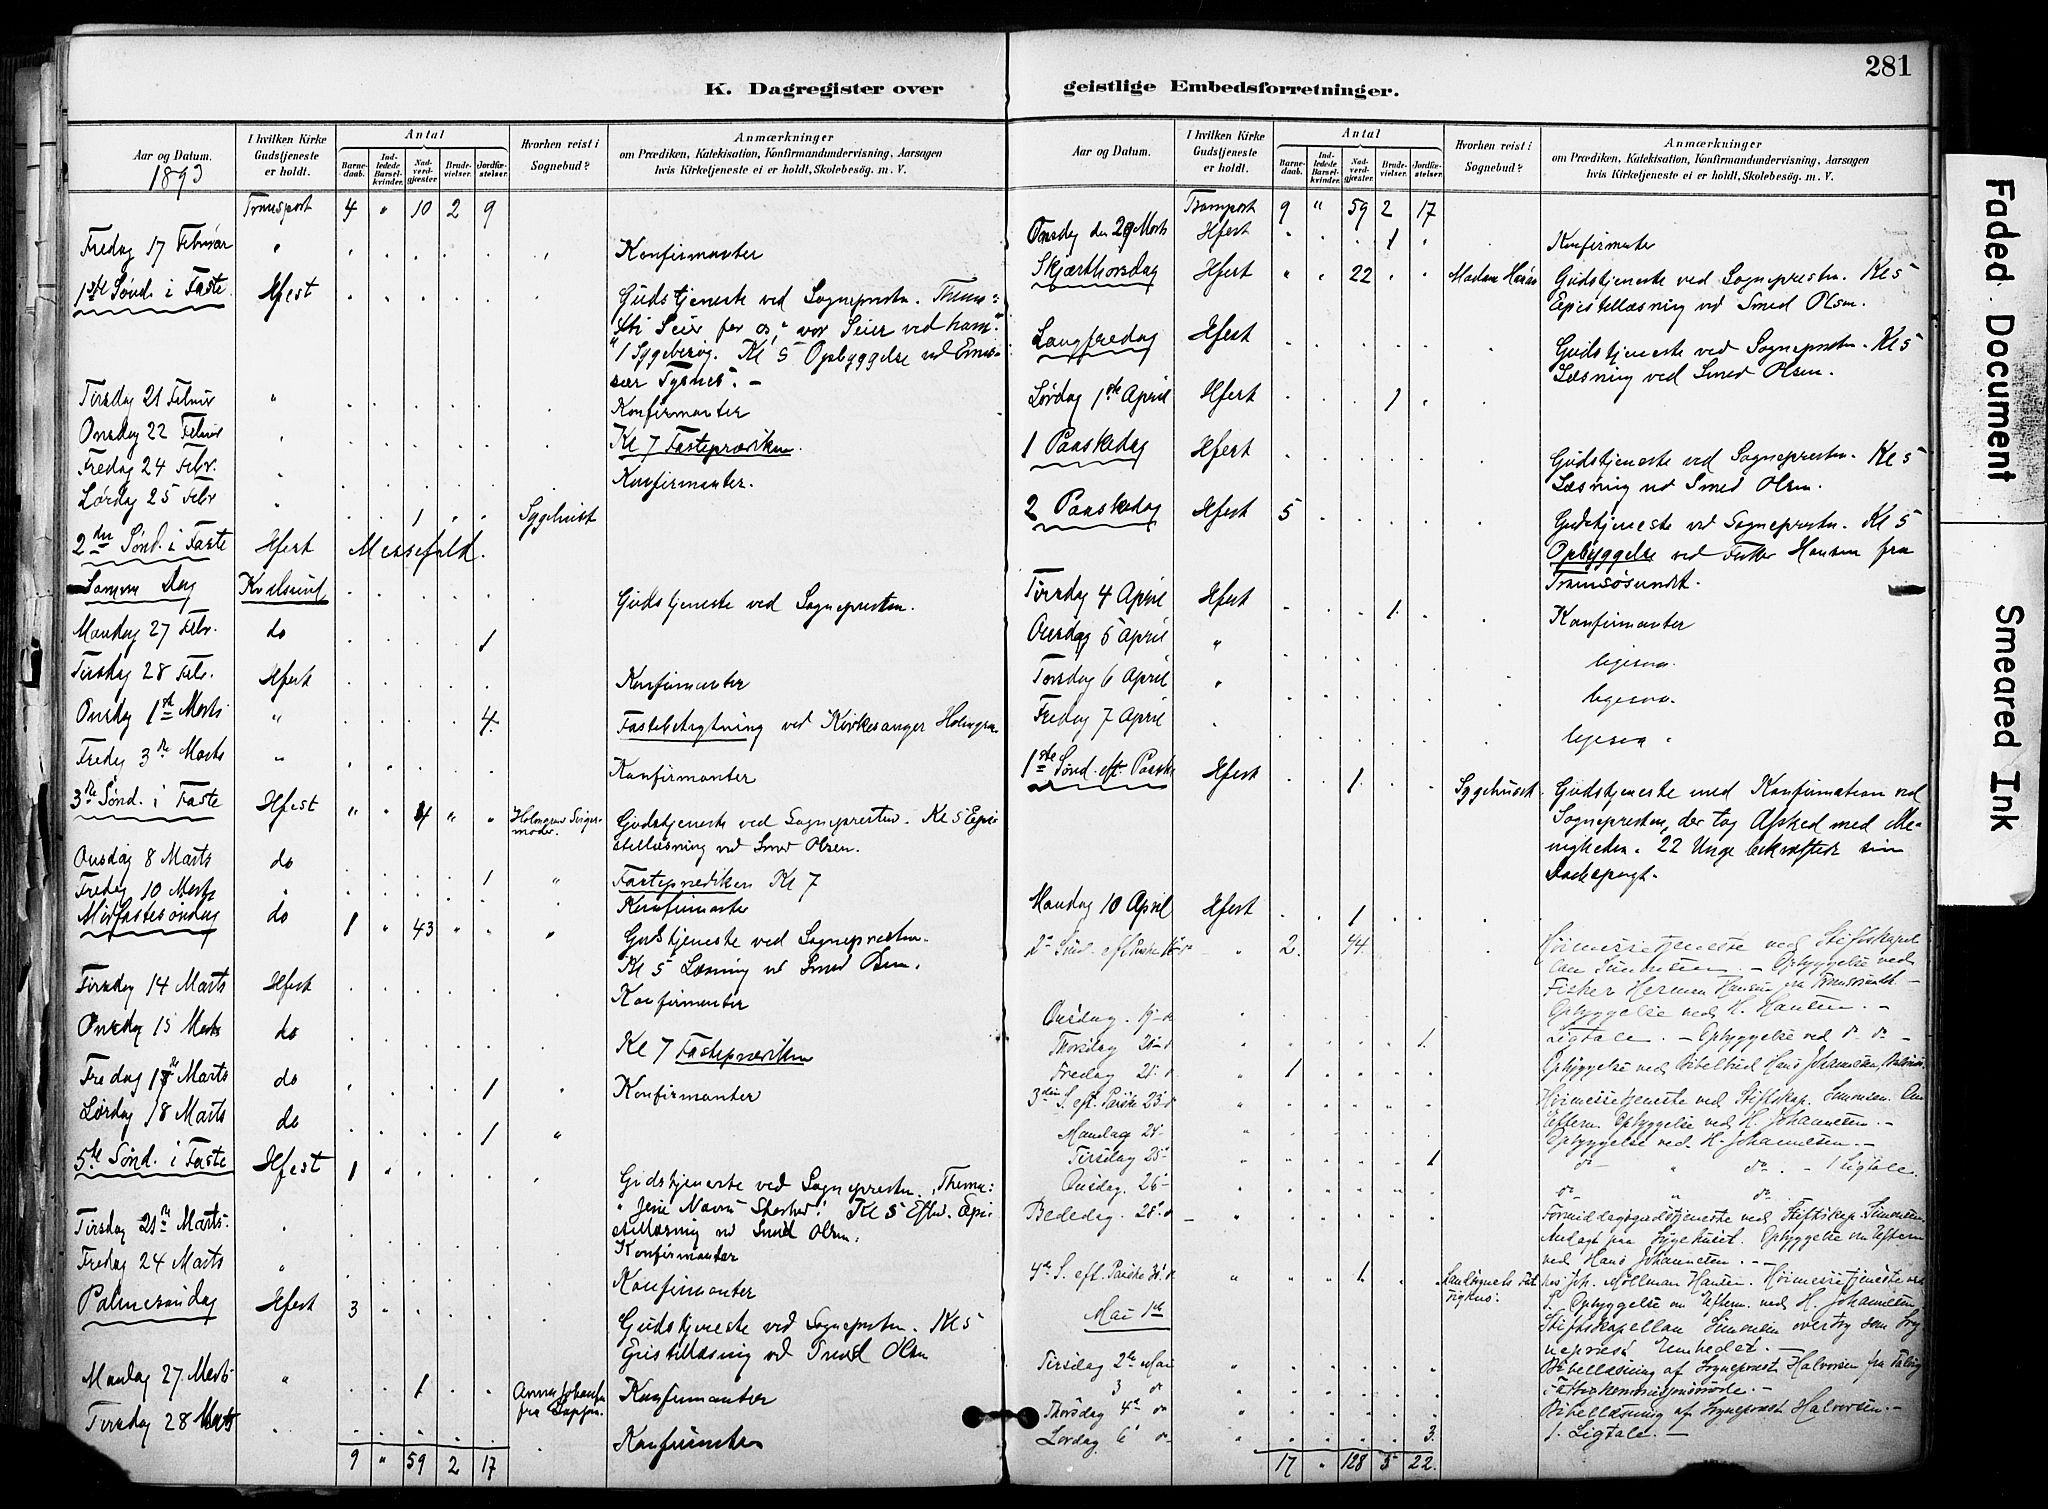 281
K. Dagregister over
geistlige Embedsforretninger.
Aar og Datum.
1893
I hvilken Kirke Gudstjeneste er holdt.
Antal
Barnedaab.
Indledede Barselkvinder.
Nadverdgjæster
Brudevielser.
Jordfæstelser.
Hvorhen reist i Sognebud?
Anmærkninger
om Prædiken, Katekisation, Konfirmandundervisning, Aarsagen
hvis Kirketjeneste ei er holdt, Skolebesøg. m. V.
Transport 4 " 10 2 9
Fredag 17 Februar " Konfirmanter
1ste Sønd. i Faste Hfest Gudstjeneste ved Sognepresten. Thema:
Seier for os, vor Seier ved ham."
1 Sygebesøg. Kl 5 Opbyggelse ved Emis-
sær Tysnes. —
Tirsdag 21 Februar " Konfirmanter
Onsdag 22 Februar Kl 7 Fasteprædiken.
Fredag 24 Febr. Konfirmanter.
Lørdag 25 Febr 1 Sygehuset
2den Sønd. i Faste Hfest Messefald.
Samme Dag Kvalsund Gudstjeneste ved Sognepresten.
Mandag 27 Febr. do 1
Tirsdag 28 Febr. Hfest Konfirmanter
Onsdag 1ste Marts " 4. Fastebetragtning ved Kirkesanger Holmgren
Fredag 3de Marts " Konfirmanter
3de Sønd. i Faste Hfest " " 4 " " Holmgrens Svigermoder Gudstjeneste ved Sognepresten. Kl 5 Epi-
stellæsning ved Smed Olsen.
Onsdag 8 Marts do 1 " Fasteprediken Kl 7
Fredag 10 Marts Konfirmanter
Midfastesøndag do 1 " 43 " " " Gudstjeneste ved Sognepresten.
Kl 5 Læsning ved Smed Olsen.
Tirsdag 14 Marts Hfest Konfirmanter
Onsdag 15 Marts do Kl 7 Fasteprædiken
Fredag 17 Marts do 1 " Konfirmanter
Lørdag 18 Marts do 1 "
5te Sønd. i Faste Hfest 1 " Gudstjeneste ved Sognepresten. Thema:
"Jesu Navns Storhed". Kl 5 Efterm. Epi-
stellæsning ved Smed Olsen.
Tirsdag 21 Marts. " Konfirmanter
Fredag 24 Marts " Konfirmanter
Palmesøndag Hfest 3 " Gudstjeneste ved Sognepresten. Kl 5
Epistellæsning ved Smed Olsen
Mandag 27 Marts " 1 Anna Johansen fra Konfirmanter
Tirsdag 28 Marts Konfirmanter
9 " 59 2 17
Aar og Datum.
I hvilken Kirke Gudstjeneste er holdt.
Antal
Barnedaab.
Indledede Barselkvinder.
Nadverdgjæster
Brudevielser.
Jordfæstelser.
Hvorhen reist i Sognebud?
Anmærkninger
om Prædiken, Katekisation, Konfirmandundervisning, Aarsagen
hvis Kirketjeneste ei er holdt, Skolebesøg. m. V.
Transport 9 " 59 2 17
Onsdag den 29 Marts Hfest 1 Konfirmanter
Skjærthorsdag Hfest " " 22 " " Madam Gudstjeneste ved Sognepresten. Kl 5
Epistellæsning ved Smed Olsen.
Langfredag Hfest Gudstjeneste ved Sognepresten. Kl 5
Læsning ved Smed Olsen.
Lørdag 1ste April Hfest 1
1 Paaskedag Hfest Gudstjeneste ved Sognepresten. Kl 5
Læsning ved Smed Olsen.
2 Paaskedag Hfest 5 Gudstjeneste ved Sognepresten. Kl 5
Opbyggelse ved Hansen fra
Tromsøsundet.
Tirsdag 4 April Hfest 1 Konfirmanter
Onsdag 5 April " ligesaa.
Torsdag 6 April " ligesaa.
Fredag 7 April ligesaa.
1ste Sønd. eft. Paaske Hfest 1 Sygehuset Gudstjeneste med Konfirmation ved
Sognepresten, der tog Afsked med Me-
nigheden. 22 Unge bekræftede sin
Daabspagt.
Mandag 10 April Hfest 1
2den Sønd. eft Paaske 16 do " 2. 44. Høimessetjeneste ved Stiftskapel-
lan Simonsen. — Opbyggelse ved
Fisker Herman Hansen fra Tromsøsundet —
Onsdag 19 do Opbyggelse ved H. Hansen. —
Thorsdag 20 do " 1. Ligtale. — Opbyggelse ved do do —
Fredag 21 do " 1 Opbyggelse ved Bibelbud Hans Johannesen,
3dien S. eft. Paaske 23 do " Høimessetjeneste ved Stiftskap. Simonsen. Om
Efterm. Opbyggelse ved H. Johannesen. —
Mandag 24 " Opbyggelse ved H. Johannesen. —
Tirsdag 25 " 1 do " do — 1 Ligtale.
Onsdag 26 " do " do
Bededag 28 do " Formiddagsgudstjeneste ved Stiftskap. Simonsen.
Andagt paa Sygehuset. Opbyggelse om Efterm
ved Hans Johannesen. —
4de S. eft. Paaske 30 do " 1 Joh. Møllman Hansen. Høimessetjeneste ved
S. Opbyggelse om Efterm. ved H. Johannesen
Mai 1ste Stiftskapellan Simonsen overtog som Sog-
neprest Embedet. —
Tirsdag 2de Mai " Bibellæsning af Sogneprest Halvorsen fra Talvig
3 do "
Thorsdag 4de do " Bibellæsning af Sogneprest Halvorsen. —
Lørdag 6 do " 3. 1. Ligtale. —
17 " 128 5 22.
Faded Document
Smeared Ink